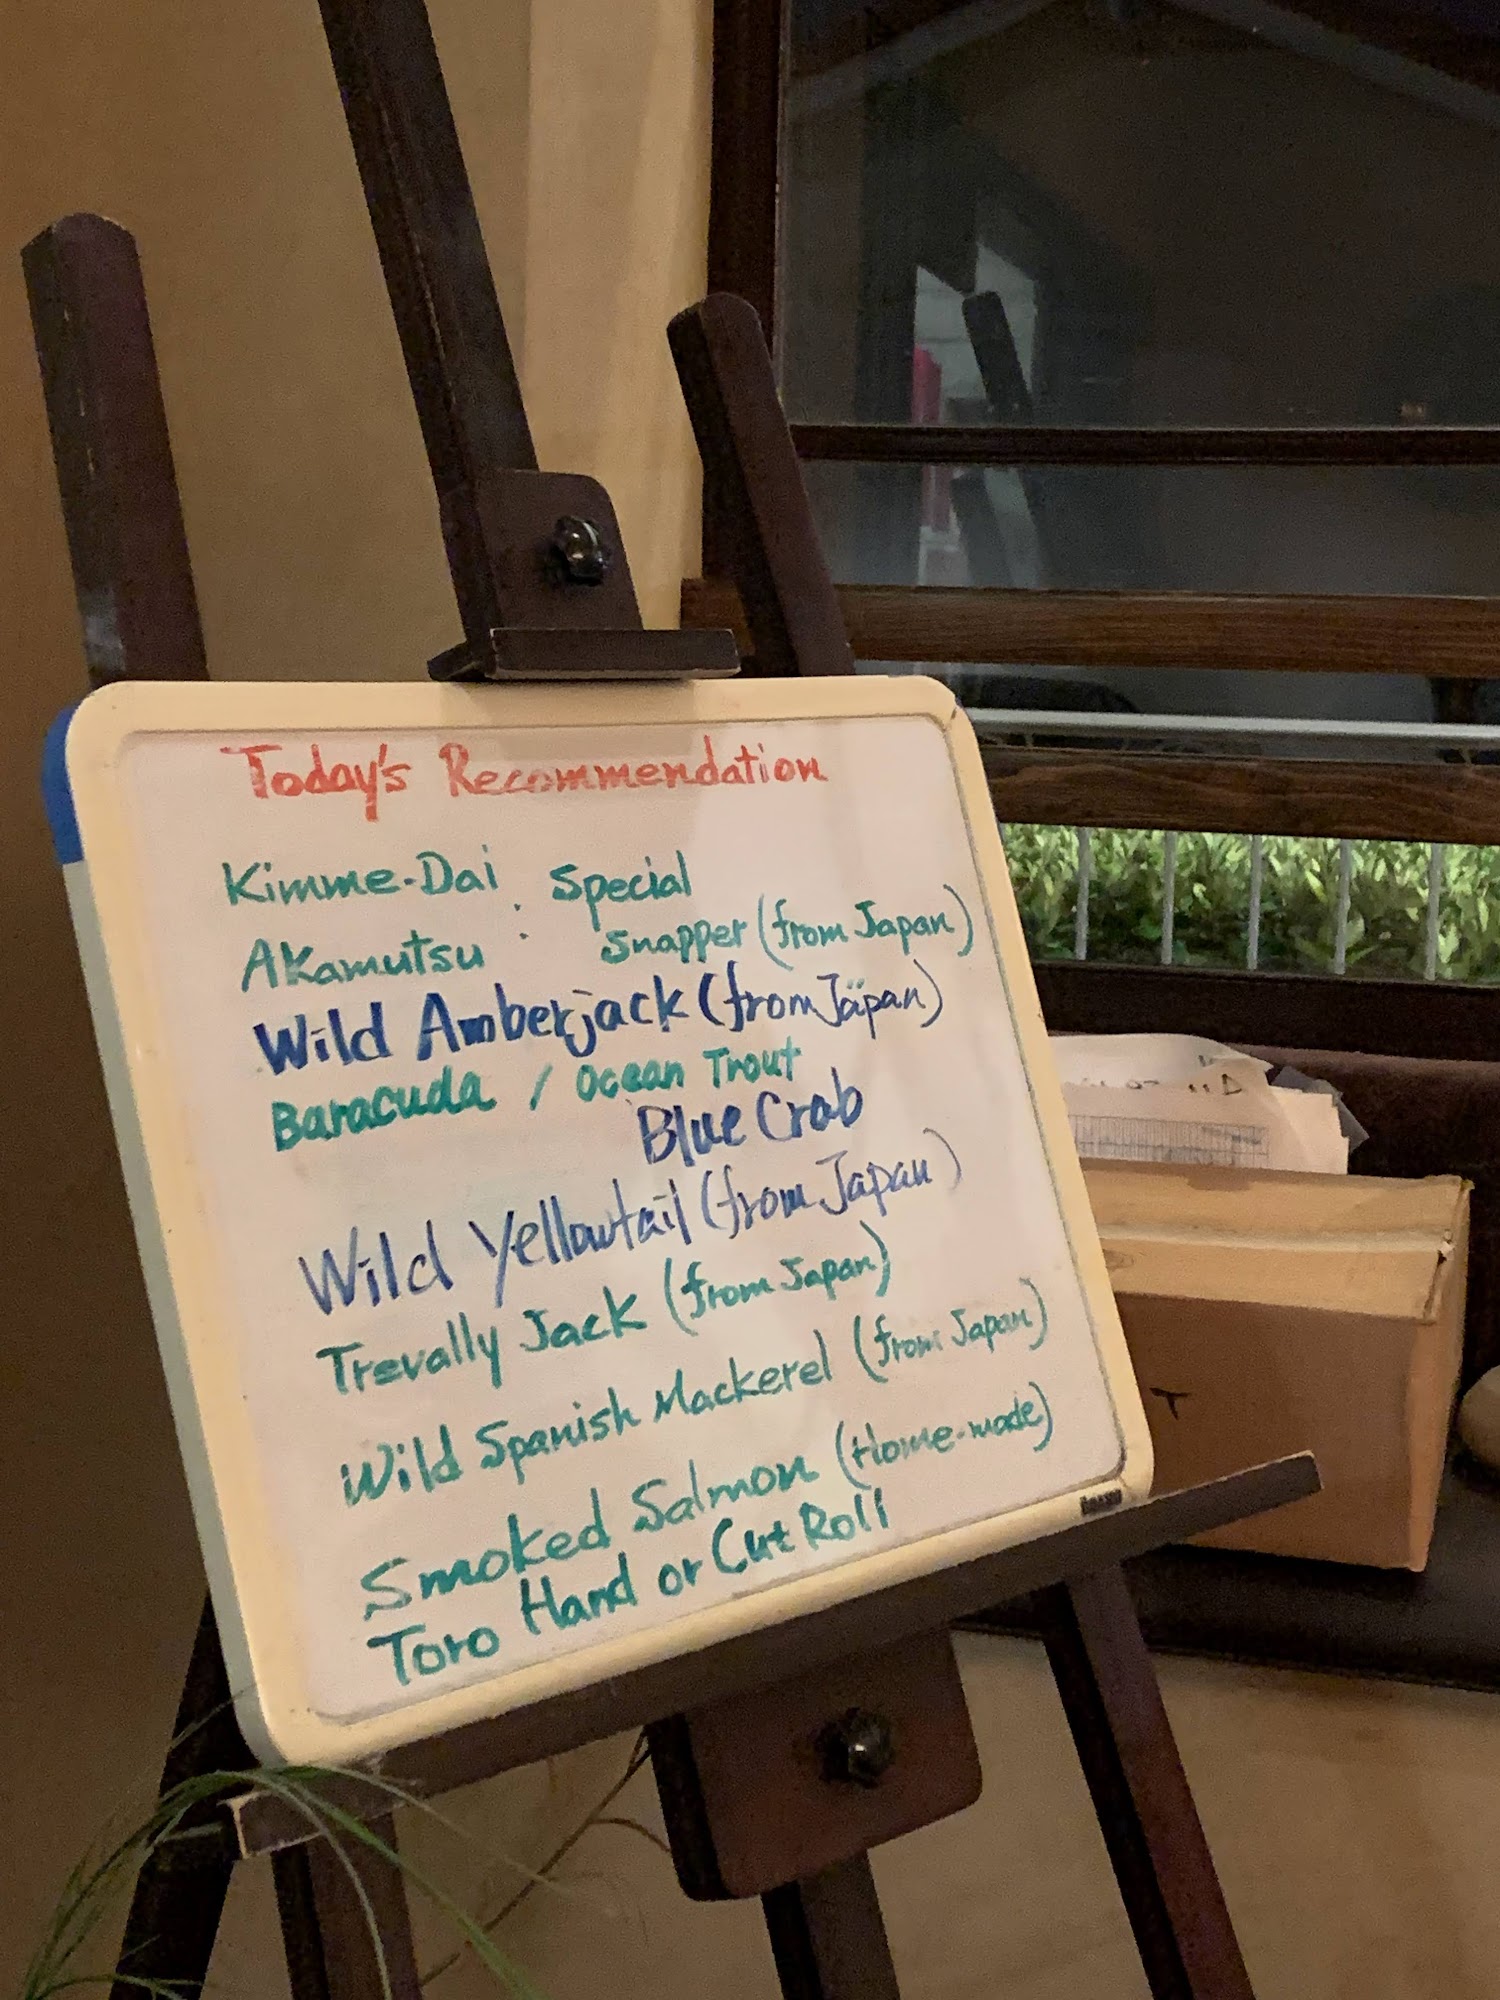 Today's Recommendation
Kimme-Dai : Special
Akamutsu : Snapper (from Japan)
Wild Amberjack (from Japan)
Baracuda / Ocean Trout
Blue Crab
Wild Yellowtail (from Japan)
Trevally Jack (from Japan)
Wild Spanish Mackerel (from Japan)
Smoked Salmon (Home-made)
Toro Hand or Cut Roll